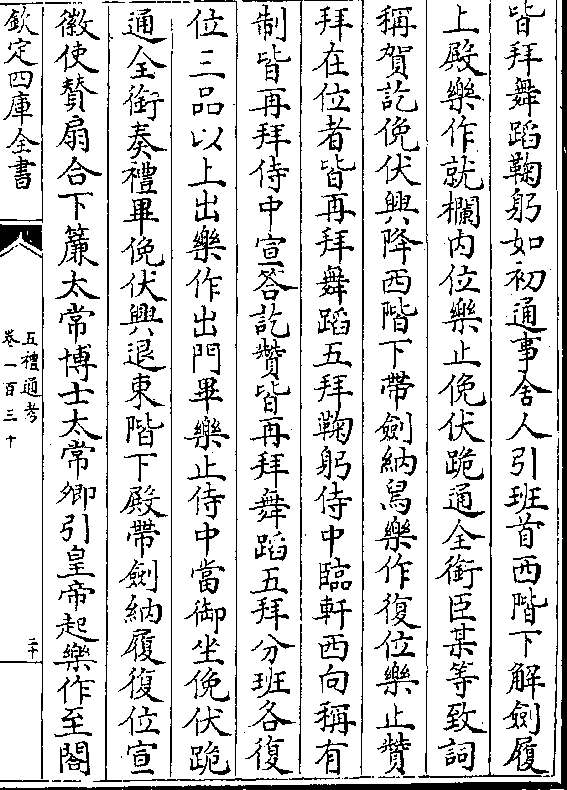 皆拜舞蹈鞠躬如初通事舍人引班首西階下解劍履
上殿樂作就欄内位樂止俛伏跪通全銜臣某等致詞
稱賀訖俛伏興降西階下帶劍納舄樂作復位樂止贊
拜在位者皆再拜舞蹈五拜鞠躬侍中臨軒西向稱有
制皆再拜侍中宣答訖贊皆再拜舞蹈五拜分班各復
位三品以上出樂作出門畢樂止侍中當御坐俛伏跪
通全銜奏禮畢俛伏興退東階下殿帶劍納履復位宣
徽使贊扇合下簾太常博士太常卿引皇帝起樂作至閤
欽定四庫全書
五禮通考
卷一百三十
二十